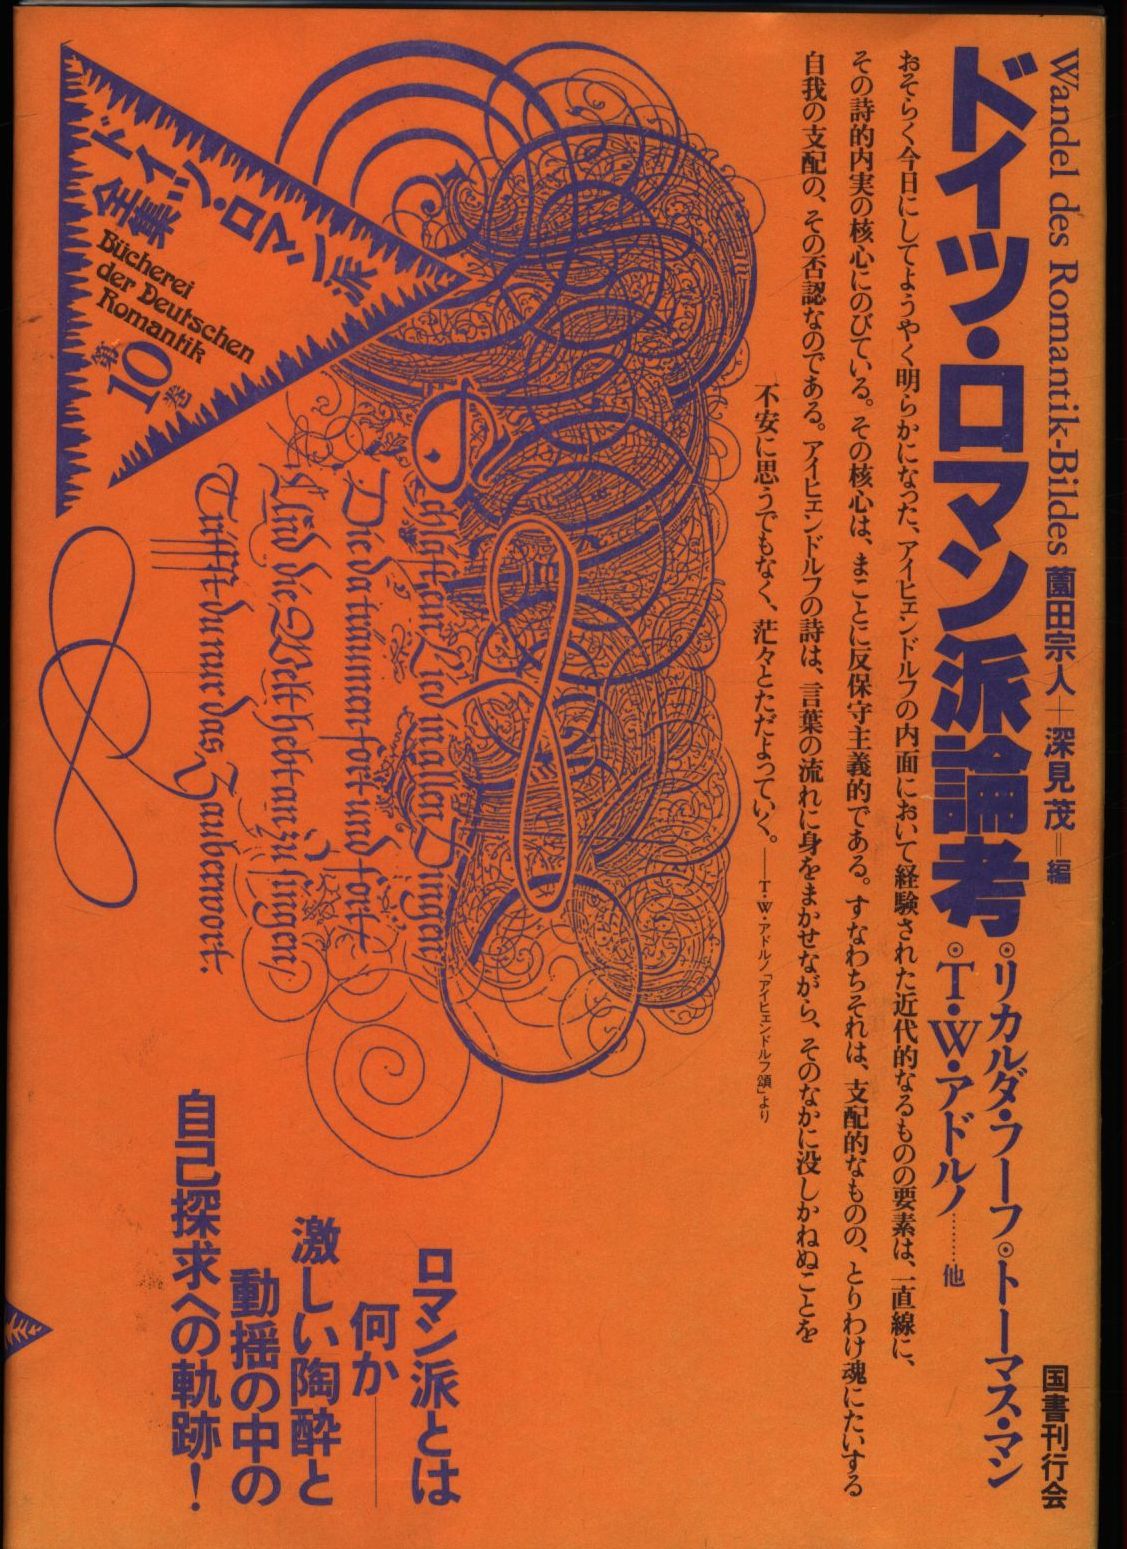 Wandel des Romantik-Bildes 薗田宗人＋深見茂＝編
国書刊行会
ドイツ・ロマン派論考
◉リカルダ・フーフ◉トーマス・マン
◉T・W・アドルノ………他
おそらく今日にしてようやく明らかになった、アイヒェンドルフの内面において経験された近代的なるものの要素は、一直線に、
その詩的内実の核心にのびている。その核心は、まことに反保守主義的である。すなわちそれは、支配的なものの、とりわけ魂にたいする
自我の支配の、その否認なのである。アイヒェンドルフの詩は、言葉の流れに身をまかせながら、そのなかに没しかねぬことを
不安に思うでもなく、茫々とただよっていく。――T・W・アドルノ「アイヒェンドルフ頌」より
ドイツ・ロマン派
全集
Bücherei
der Deutschen
Romantik
第10巻
Schläft ein Lied in allen Dingen,
Die da träumen fort und fort,
Und die Welt hebt an zu singen,
Triffst du nur das Zauberwort.
ロマン派とは
何か――
激しい陶酔と
動揺の中の
自己探求への軌跡！